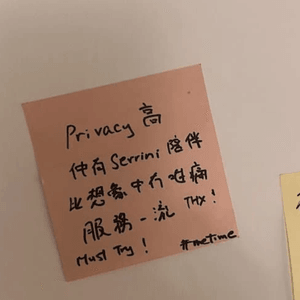 Privacy 高
仲有Serrini陪伴
比想象中冇咁痛
服務一流 THX!
Must Try! #metime